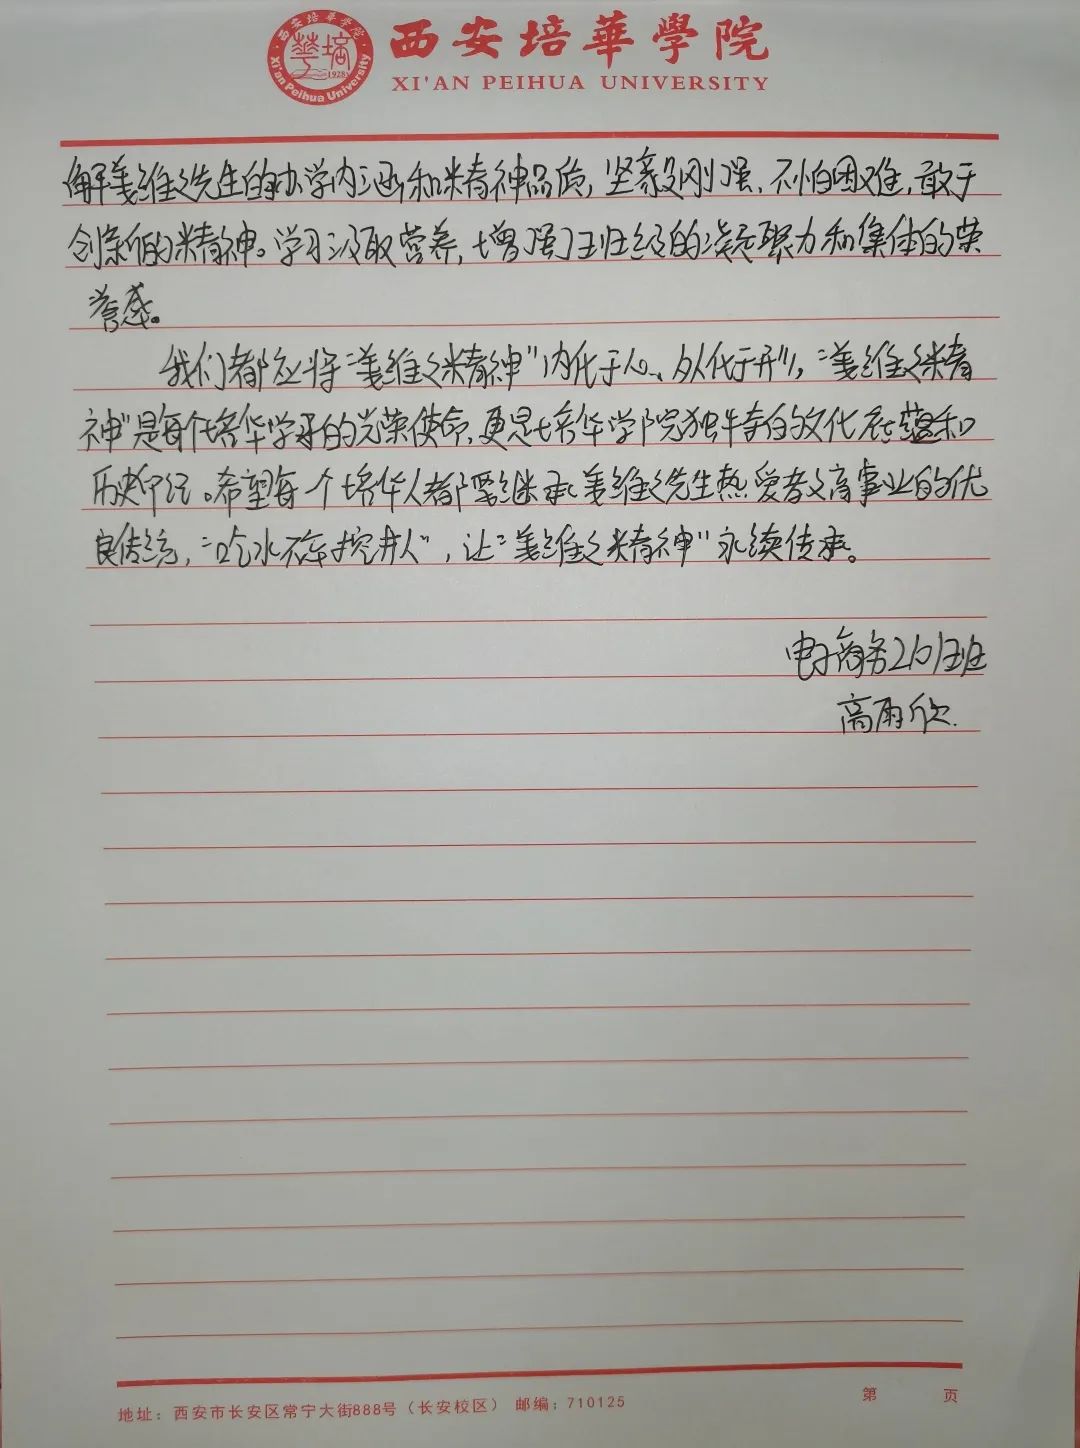 西安培華學院
XI'AN PEIHUA UNIVERSITY
西安培華學院
華培
1928
Xi'an Peihua University
解姜维之先生的办学内涵和精神品质,坚毅刚强、不怕困难,敢于
创新的精神。学习汲取营养,增强了班级的凝聚力和集体的荣
誉感。
我们都应将“姜维之精神”内化于心、外化于形,“姜维之精
神”是每个培华学子的光荣使命,更是培华学院独特的文化底蕴和
历史印记。希望每个培华人都要继承姜维之先生热爱教育事业的优
良传统,“吃水不忘挖井人”,让“姜维之精神”永续传承。
电子商务2101班
高雨欣
地址：西安市长安区常宁大街888号（长安校区） 邮编：710125
第 页